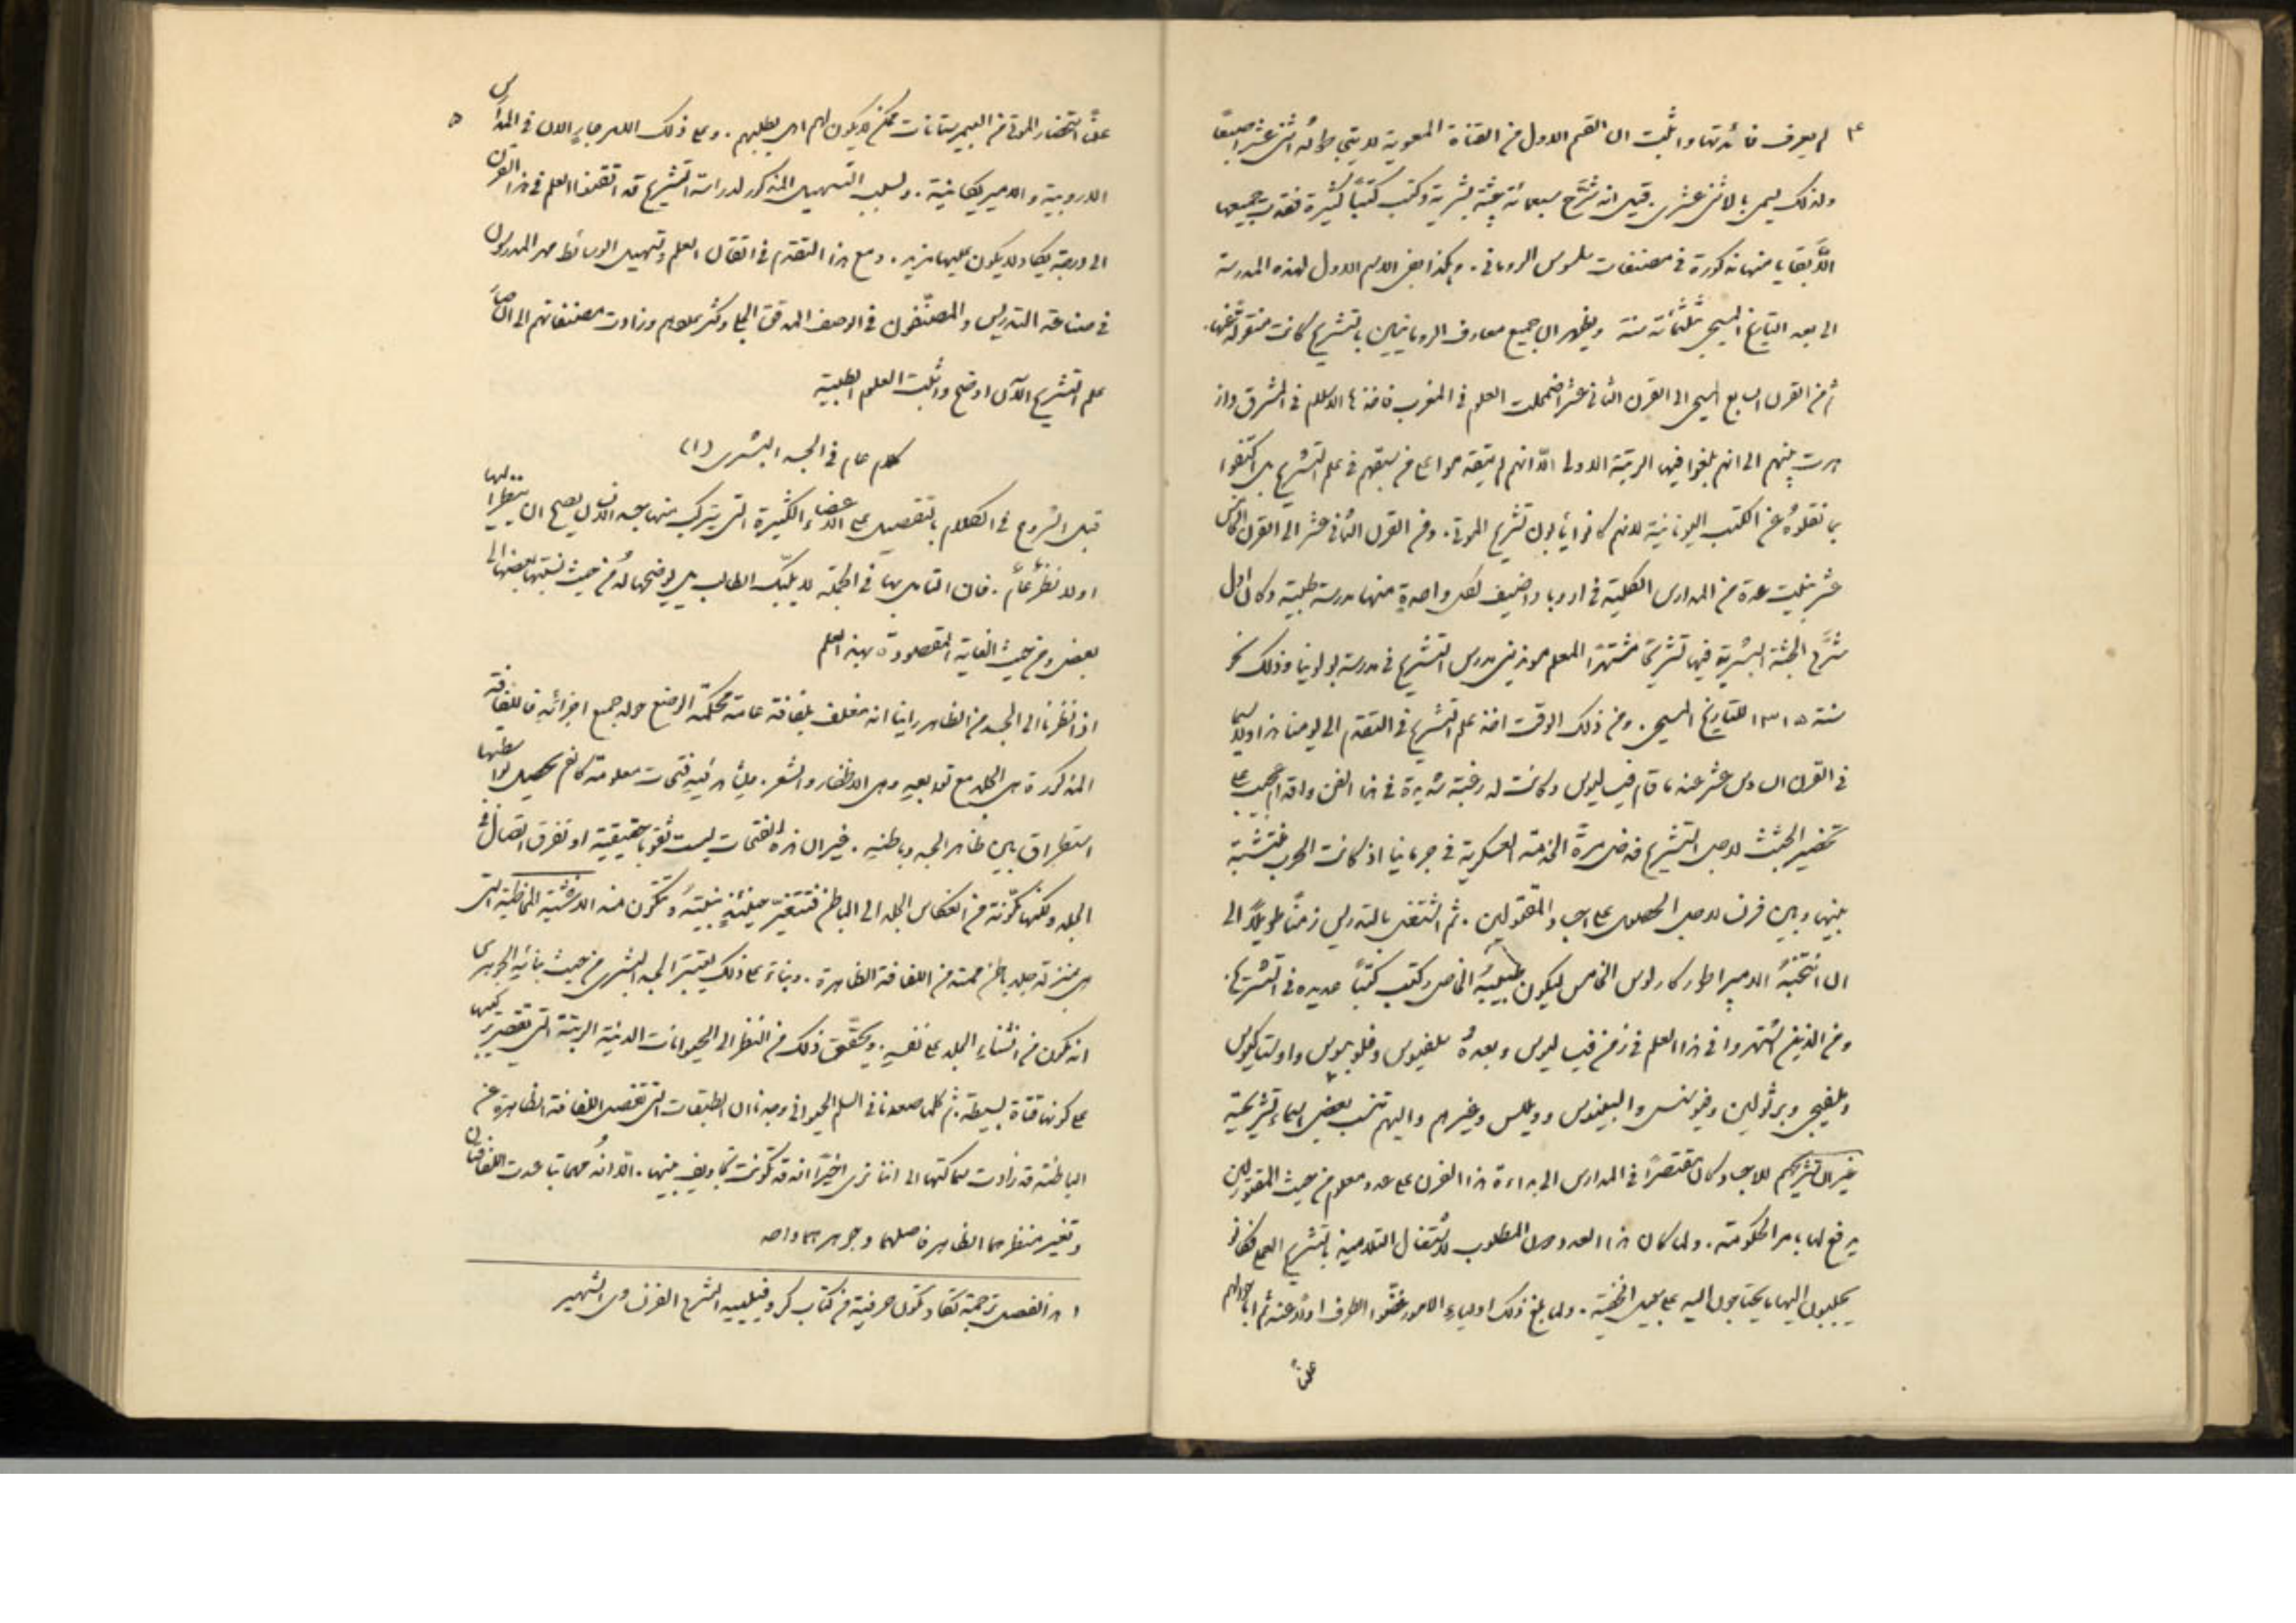 ٤ لم يعرف فائدتها واثبت ان القسم الاول من القناة المعوية لا يتجاوز طوله اثني عشر اصبعًا
ولذلك يسمى بالاثني عشري. قيل انه شرَّح سبعمائة جثة بشرية وكتب كتبًا كثيرة فقدت جميعها
الَّا بقايا منها مذكورة في مصنفات سلسوس الروماني. وهكذا بقي الاسم الاول لهذه المدرسة
الى بعد التاريخ المسيحي بثلثمائة سنة ويظهر ان جميع معارف الرومانيين بالتشريح كانت منقولة عنها.
ثم من القرن السابع المسيحي الى القرن الثاني عشر اضمحلت العلوم في المغرب فاخذها الاسلام في المشرق واز
هرت بينهم الى انهم بلغوا فيها الرتبة الاولى الّا انهم لم يتقدموا على من سبقهم في علم التشريح بل اكتفوا
بما نقلوهُ عن الكتب اليونانية لانهم كانوا يأبون تشريح الموتى. ومن القرن الثاني عشر الى القرن الخامس
عشر بنيت عدة من المدارس الكلية في اوروبا واضيف لكل واحدةٍ منها مدرسة طبية وكان اول
من شرَّح الجثة البشرية فيها تشريحًا مشتهرًا المعلم موندينى مدرس التشريح في مدرسة بولونيا وذلك نحو
سنة ١٣١٥ للتاريخ المسيحي. ومن ذلك الوقت اخذ علم التشريح في التقدم الى يومنا هذا ولاسيما
في القرن السادس عشر عندما قام فيساليوس وكانت له رغبة شديدة في هذا الفن واقدام عجيب على
تحضير الجثث لاجل التشريح فدخل مرةً الخدمة العسكرية في جرمانيا اذ كانت الحرب منتشبة
بينها وبين فرنسا لاجل الحصول على اجساد المقتولين. ثم اشتغل بالتدريس زمنًا طويلًا الى
ان انتخبهُ الامبراطور كارلوس الخامس ليكون طبيبهُ الخاص وكتب كتبًا عديده في التشريح.
ومن الذين اشتهروا في هذا العلم في زمن فيساليوس وبعدهُ سلفيوس وفلوبيوس واوستاكيوس
وملفيجي وبرثولين وفيوسنس والبينوس وويلس وغيرهم واليهم تنسب بعض اسماء تشريحية
غير ان تشريحهم للاجساد كان مقتصرًا في المدارس الى بداءة هذا القرن على عدد معلوم من جثث المقتولين
يدفع لها بامر الحكومة. ولما كان هذا العدد دون المطلوب لاشتغال التلاميذ بالتشريح العملي كانوا
يجلبون اليها ما يحتاجون اليه على سبيل الخفية. ولما بلغ ذلك اولياء الامور غضّوا الطرف اولًا عنه ثم اباحوا لهم
علنًا
علنًا استحضار الموتى من البيمرستانات ممكن لا يكون لهم اهل يطلبهم. وعلى ذلك الامر جارٍ الان في المدارس ٥
الاروبية والاميريكانية. ولسبب التسهيل المذكور لدراسة التشريح قد اتقن هذا العلم في هذا القرن
الى درجة يكاد لا يكون عليها مزيد. ومع هذا التقدم في اتقان العلم وتسهيل الوسائط مهر المدرسون
في صناعة التدريس والمصنّفون في الوصف المدقق الجلي وكثر عددهم وزادت مصنفاتهم الى ان صار
علم التشريح الآن اوضح واثبت العلوم الطبية
كلام عام في الجسد البشري (١)
قبل الشروع في الكلام بالتفصيل على الاعضاء الكثيرة التي يتركب منها جسد الانسان يصح ان ينظر اليها
اولا نظرًا عامًّا. فان التامل بها في الجملة لا يلبّك الطالب بل يوضحها لهُ من حيث نسبتها بعضها الى
بعض ومن حيث الغاية المقصودة بهذا العلم
اذا نظرنا الى الجسد من الظاهر راينا انه مغلف بلفافة عامة محكمة الوضع حول جميع اجزائهِ فاللفافة
المذكورة هي الجلد مع توابعهِ وهي الاظفار والشعر. وليشاهد فيهِ فتحات معلومة كالفم يحصل بواسطتها
استطراق بين ظاهر الجسد وباطنهِ. غير ان هذه الفتحات ليست ثقوبا حقيقية او تفرق اتصال في
الجلد ولكنها مكوّنة من انعكاس الجلد الى الباطن فتتغير حينئذٍ بنيتهُ وتتكون منه الاغشية المخاطية التي
هي بمنزلة جلد باطن ممتد من اللفافة الظاهرة. وبناءً على ذلك يعتبر الجسد البشري من حيث بنائهِ الجوهري
انه مكون من انثناء الجلد على نفسهِ. ويحقق ذلك من النظر الى الحيوانات الدنيئة الرتبة التي تقتصر تركيبها
على كونها قناة بسيطة. ثم كلما صعدنا في السلم الحيواني وجدنا ان الطبقات التي تفصل اللفافة الظاهرة عن
الباطنة قد زادت سماكتها الى اننا نرى اخيرًا انه قد تكونت تجاويف بينها. الّا انهُ مهما تباعدت اللفافتان
وتغير منظرهما الظاهر فاصلهما وجوهرهما واحد
١ هذا الفصل ترجمة تكاد تكون حرفية من كتاب كروفيلييه المشرح الفرنساوي الشهير